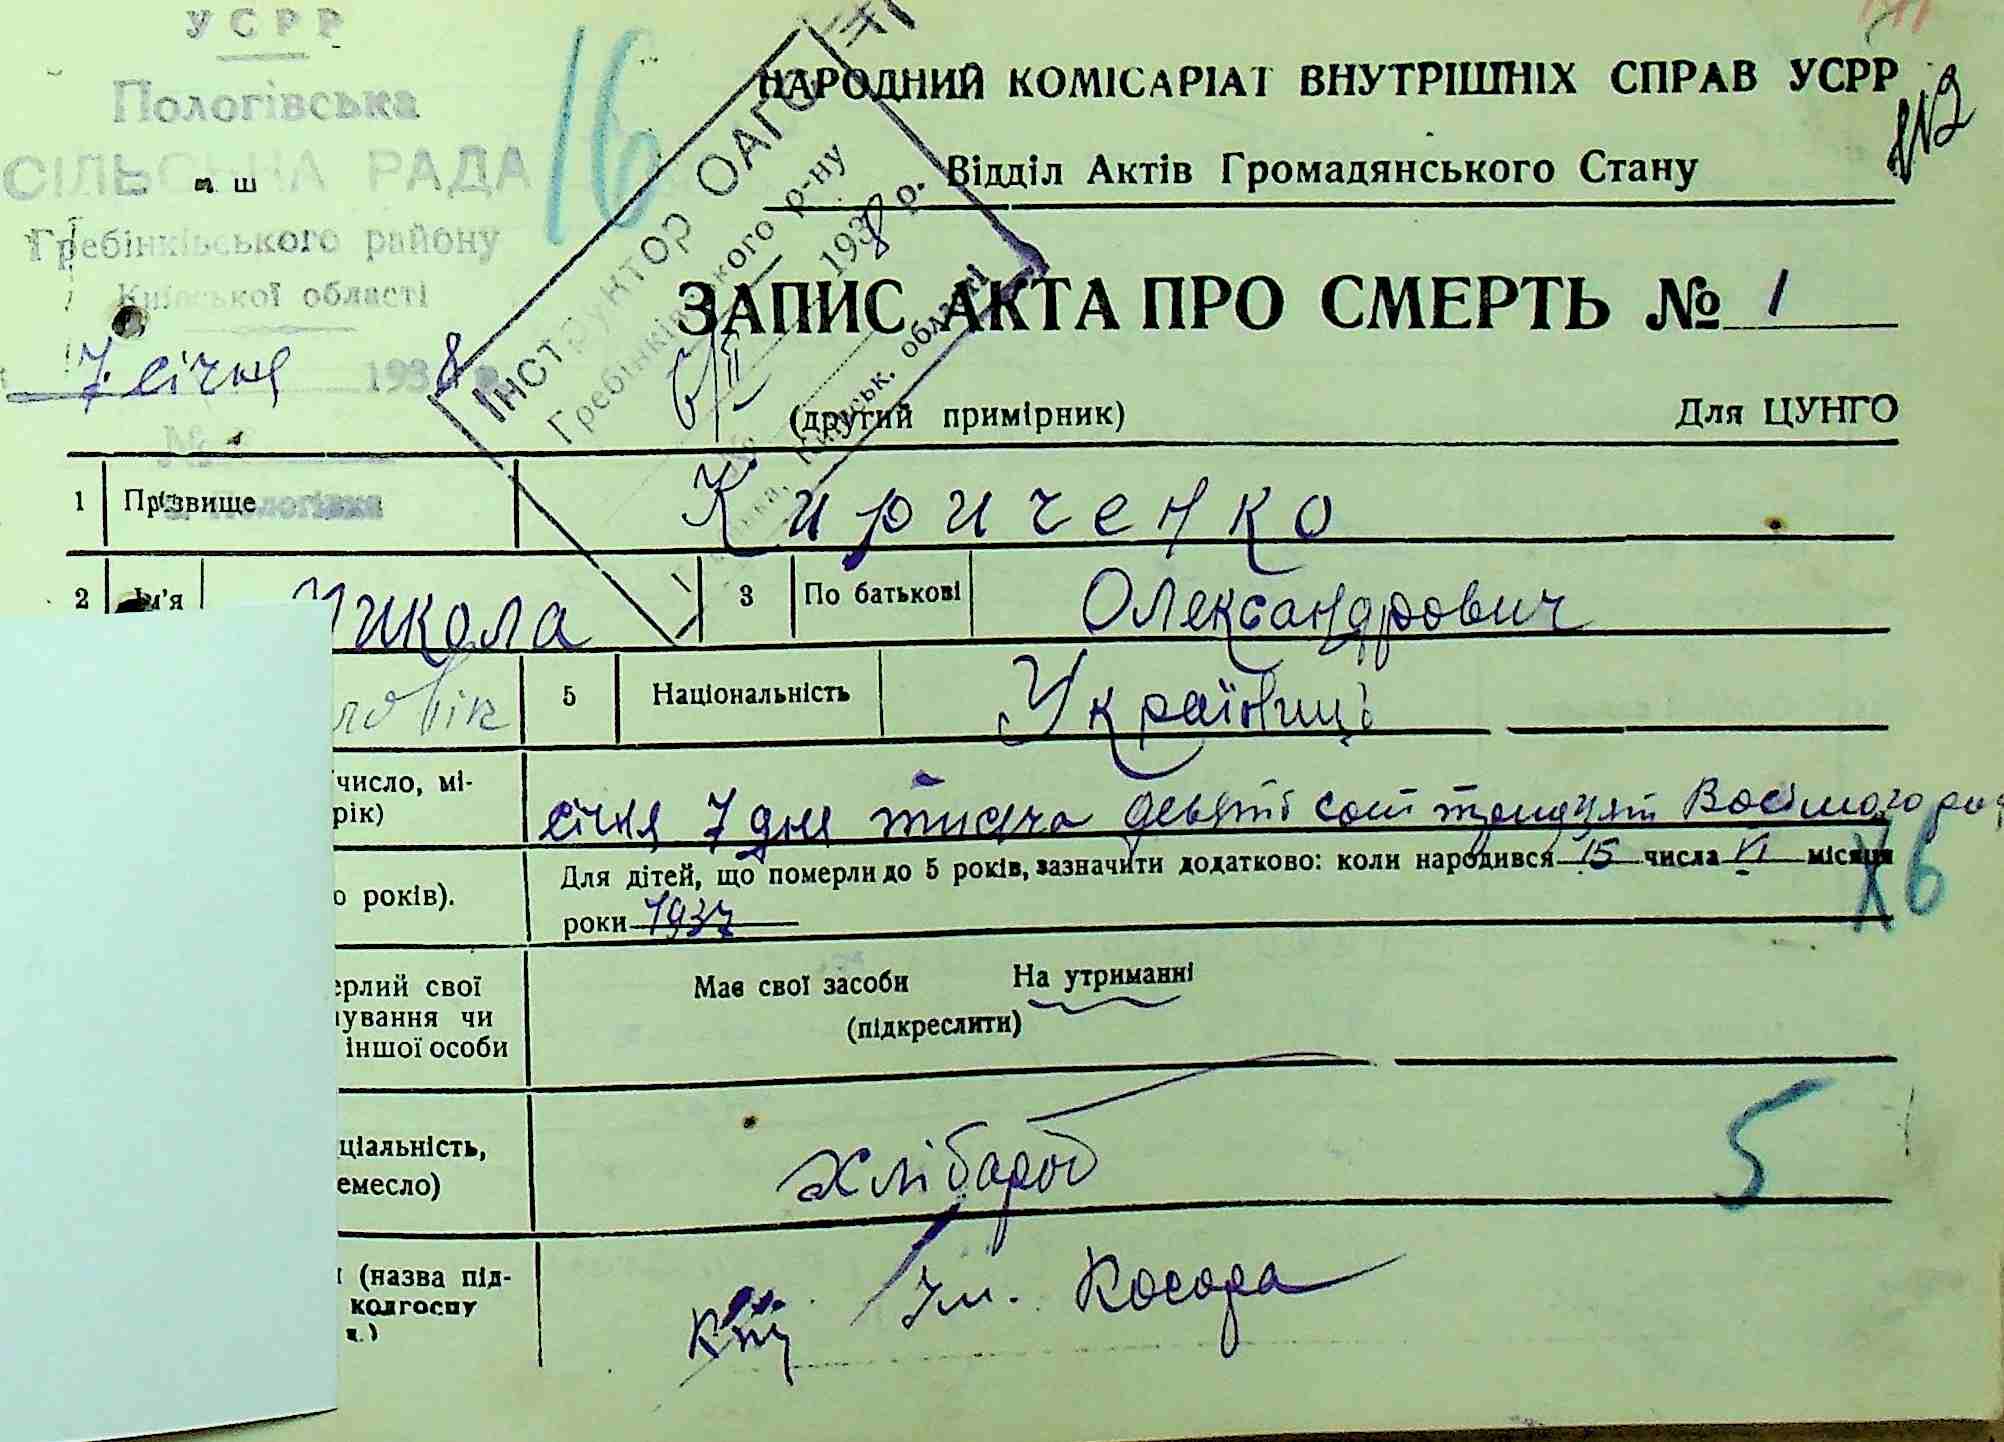 УСРР
Пологівська
СІЛЬСЬКА РАДА
Гребінківського району
Київської області
7 січня 1938 р.
№
с. Пологівка
16
Інструктор ОАГС
Гребінківського р-ну
6/II 1938 р.
№
Київськ. області
НАРОДНИЙ КОМІСАРІАТ ВНУТРІШНІХ СПРАВ УСРР
Відділ Актів Громадянського Стану
ЗАПИС АКТА ПРО СМЕРТЬ № 1
(другий примірник) Для ЦУНГО
1 Прізвище Кириченко
2 Ім'я Микола 3 По батькові Олександрович
ловік 5 Національність Україниць
число, мі-
рік)
січня 7 дня тисяча девятсот тридцят Восімого року
о років).
Для дітей, що померли до 5 років, зазначити додатково: коли народився 15 числа VI місяця
роки 1937
Х6
ерлий свої
ування чи
іншої особи
Має свої засоби На утриманні
(підкреслити)
ціальність,
емесло)
Хлібароб
5
(назва під-
колгоспу
Ім. Косора